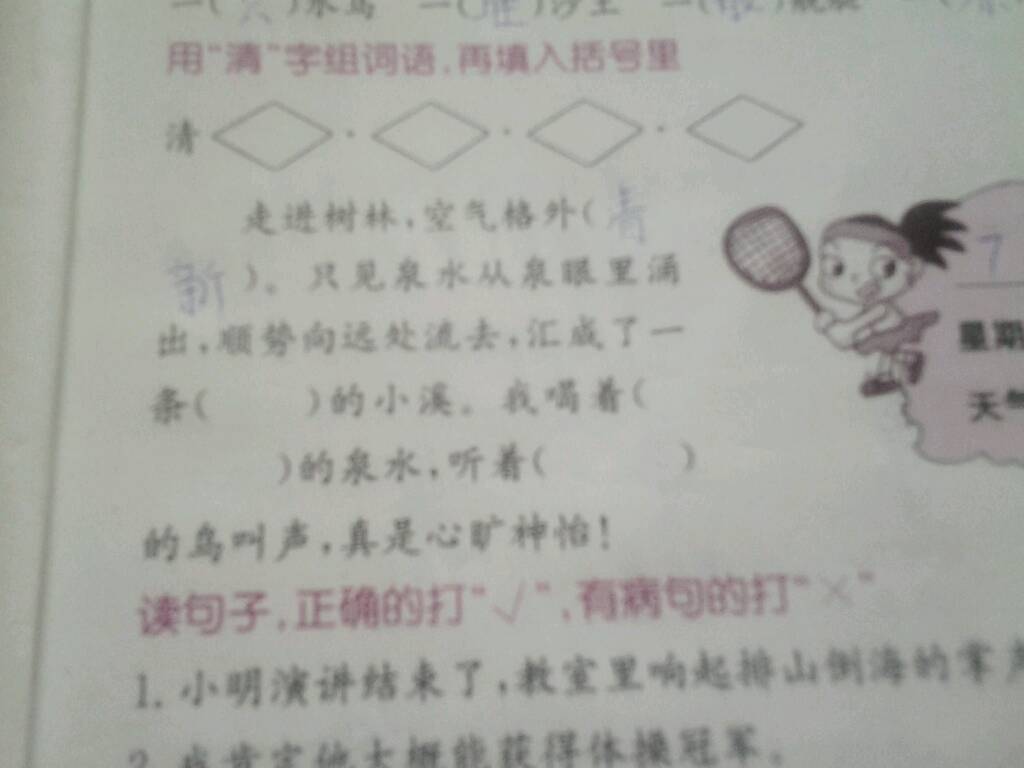 用“清”字组词语，再填入括号里
清 · · ·
走进树林，空气格外（青
新）。只见泉水从泉眼里涌
出，顺势向远处流去，汇成了一
条（ ）的小溪。我喝着（
）的泉水，听着（ ）
的鸟叫声，真是心旷神怡！
7
星期
天气
读句子，正确的打“√”，有病句的打“×”
1. 小明演讲结束了，教室里响起排山倒海的掌声
2. 我肯定他大概能获得体操冠军。